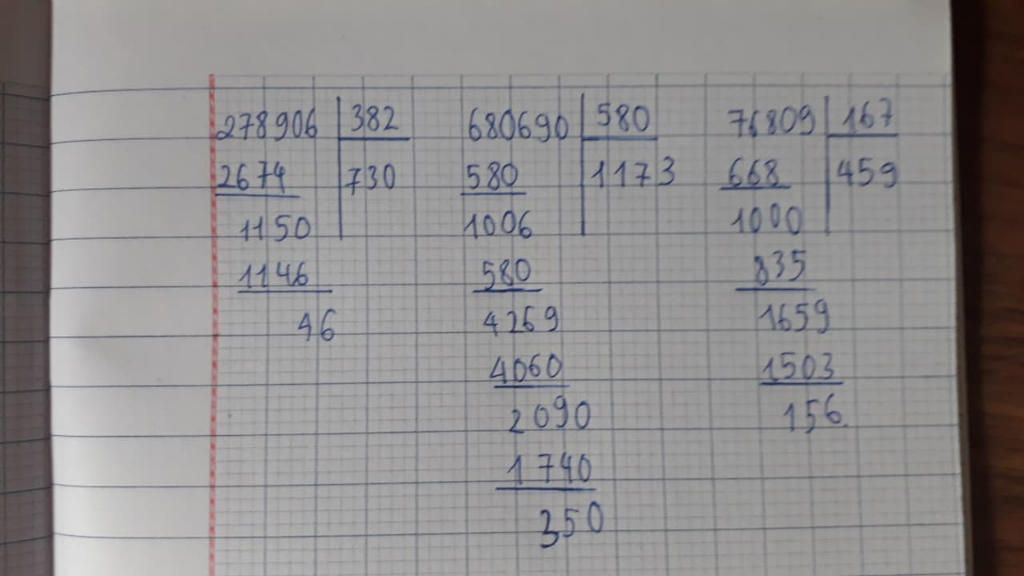 278906 382 680690 580 76809 167
2674 730 580 1173 668 459
1150 1006 1000
1146 580 835
46 4269 1659
4060 1503
2090 156
1740
350